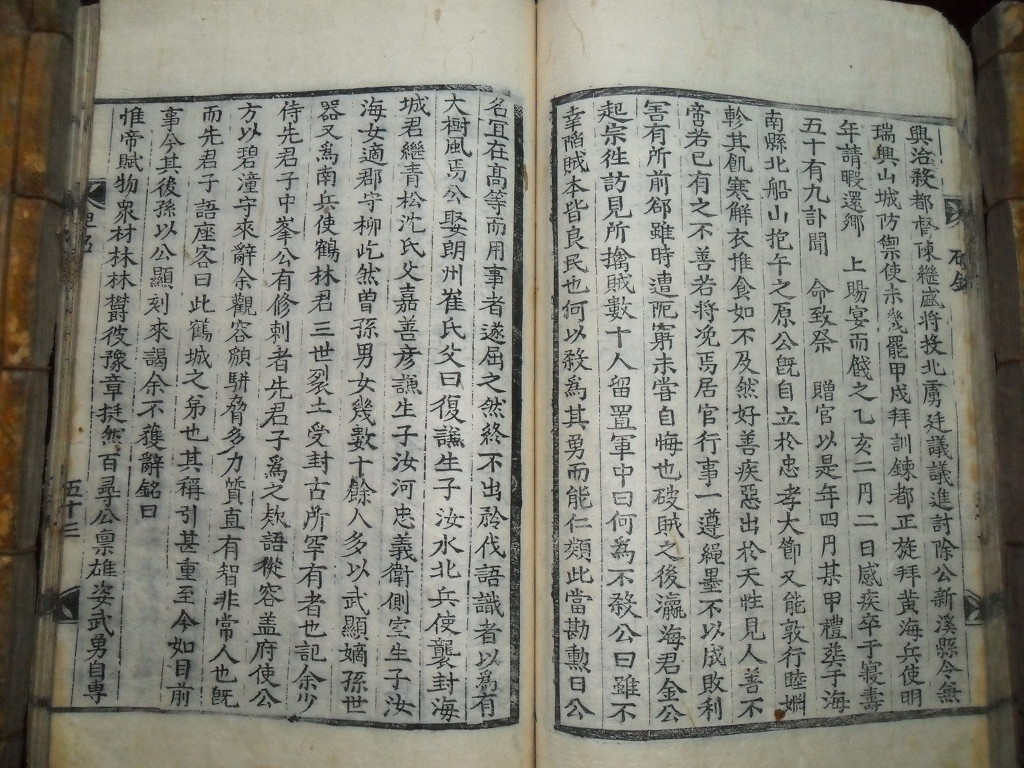 興洛殺都督陳繼盛將投北虜廷議議進討除公新溪縣令無
瑞興山城防禦使未幾罷甲戌拜訓鍊都正旋拜黃海兵使明
年請暇還鄉 上賜宴而餞之乙亥二月二日感疾卒于寢壽
五十有九訃聞 命致祭 贈官以是年四月某甲禮葬于海
南縣北船山抱午之原公旣自立於忠孝大節又能敦行睦婣
軫其飢寒解衣推食如不及然好善疾惡出於天性見人善不
啻若已有之不善若將浼焉居官行事一遵繩墨不以成敗利
害有所前郤雖時遭阨窮未嘗自悔也破賊之後瀛海君金公
起宗徃訪見所擒賊數十人留置軍中曰何爲不殺公曰雖不
幸陷賊本皆良民也何以殺爲其勇而能仁類此當勘勳日公
名宜在高等而用事者遂屈之然終不出矜伐語識者以爲有
大樹風焉公娶朗州崔氏父曰復謙生子汝水北兵使襲封海
城君繼青松沈氏父嘉善彦謙生子汝河忠義衛側室生子汝
海女適郡守柳屹然曽孫男女幾數十餘人多以武顯嫡孫世
器又爲南兵使鶴林君三世裂土受封古所罕有者也記余少
侍先君子中峯公有修刺者先君子爲之欵語從容盖府使公
方以碧潼守來辭余觀容顔駢脅多力質直有智非常人也旣
而先君子語座客曰此鶴城之弟也其稱引甚重至今如目前
事今其後孫以公顯刻來謁余不獲辭銘曰
惟帝賦物衆材林林欝彼豫章挺然百尋公禀雄姿武勇自専
碑銘
五十三